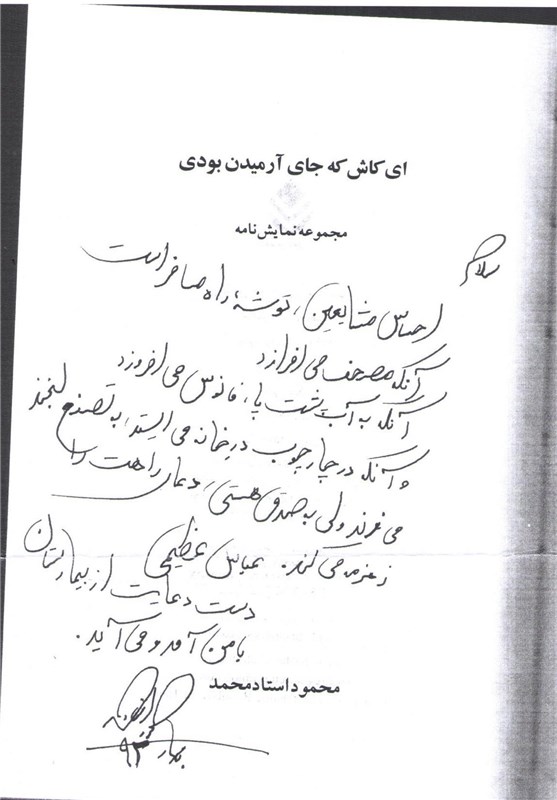 ای کاش که جای آرمیدن بودی
مجموعه نمایش‌نامه
سلام
احساس مشایعین، توشهٔ راه مسافر است
آنکه مصحف می افرازد
آنکه به آب پشت پا، فانوس می افروزد
و آنکه در چارچوب درِ خانه می ایستد، به تصنع لبخند
می زند ولی به صدق هستی، دعای راهت را
زمزمه می کند. عباس عظیمی
دست دعایت از بیمارستان
با من آمد و می آید.
محمود استادمحمد
بهار ۹۳